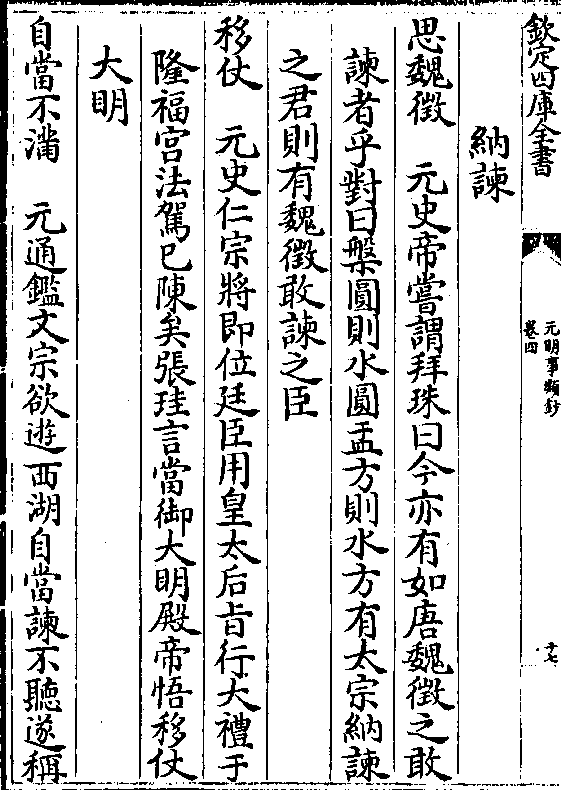 欽定四庫全書
元明事類鈔
卷四
十七
納諫
思魏徵　元史帝嘗謂拜珠曰今亦有如唐魏徵之敢
諫者乎對曰槃圓則水圓盂方則水方有太宗納諫
之君則有魏徵敢諫之臣
移仗　元史仁宗將即位廷臣用皇太后旨行大禮于
隆福宫法駕已陳矣張珪言當御大明殿帝悟移仗
大明
自當不滿　元通鑑文宗欲遊西湖自當諫不聽遂稱